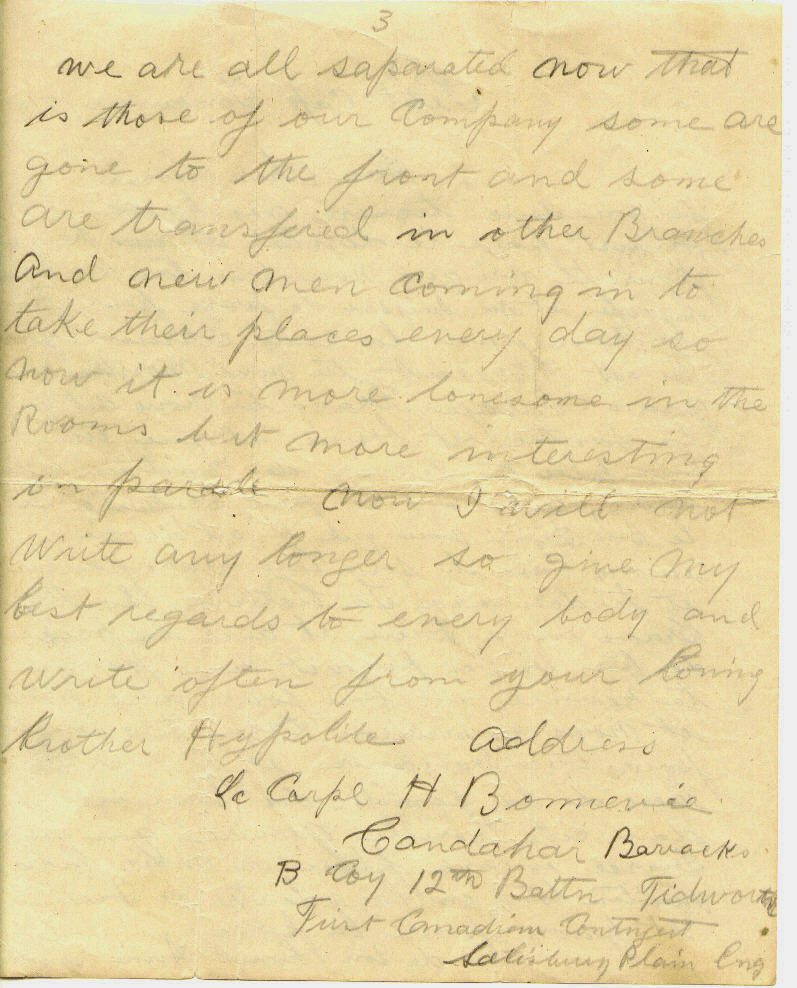 3
we are all saparated now that
is those of our Company some are
gone to the front and some
are transfired in other Branches
And new men coming in to
take their places every day so
now it is more lonesome in the
Rooms but more interesting
in parade now I will not
Write any longer so give my
best regards to every body and
write often from your loving
Brother Hypolite Address
Lc Corpl H Bonnevie
Candahar Barracks
B Coy 12th Battn Tidworth
First Canadian Contngest
Salisbury Plain Eng